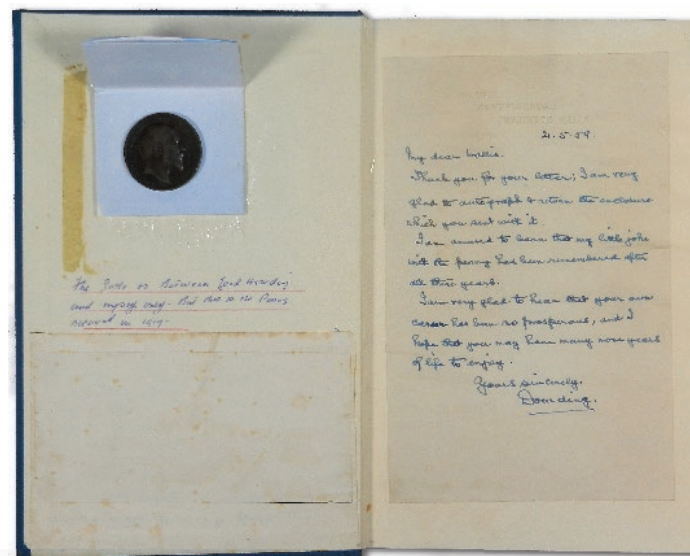 The        is Between Lord Dowding
and myself only. But this is the Penny
        in 1917.
2.5.59.
My dear Willis.
Thank you for your letter; I am very
glad to autograph & return the enclosure
which you sent with it.
I am amused to learn that my little joke
with the penny has been remembered after
all these years.
I am very glad to hear that your own
career has been so prosperous, and I
hope that you may have many more years
of life to enjoy.
Yours sincerely.
Dowding.